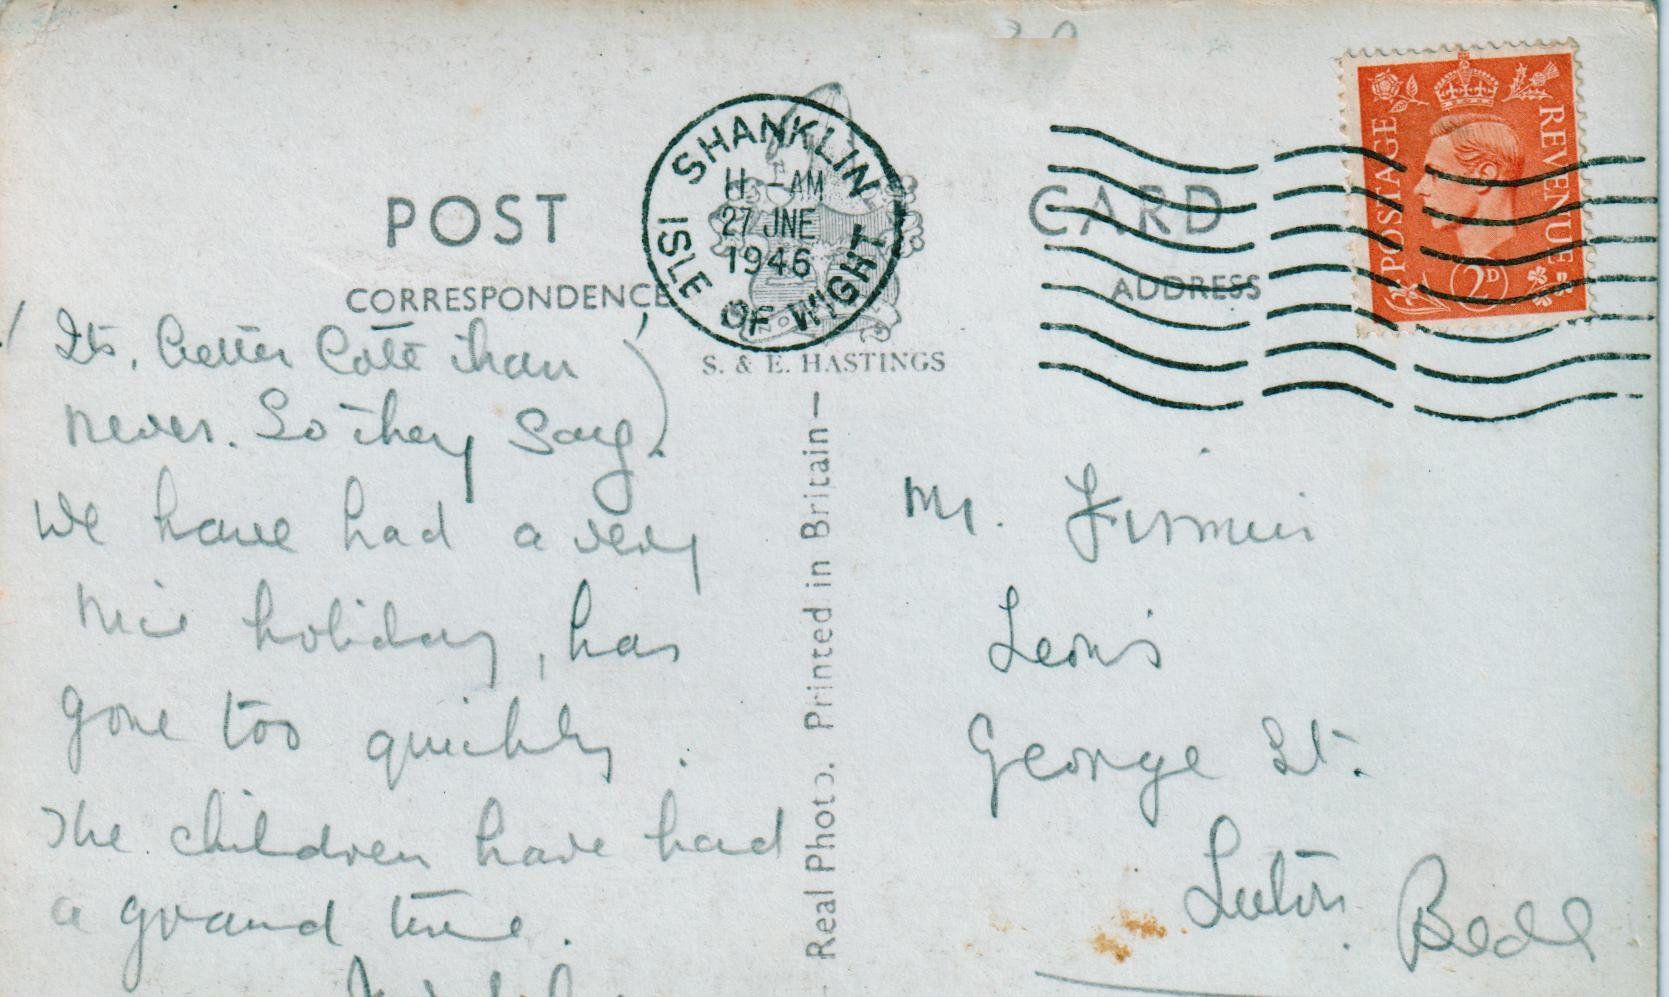 POST CARD
CORRESPONDENCE
ADDRESS
SHANKLIN
11 - AM
27 JNE
1946
ISLE OF WIGHT
POSTAGE REVENUE
2D
S. & E. HASTINGS
Real Photo. Printed in Britain
(Its, better late than
never. So they say.)
We have had a very
nice holiday, has
gone too quickly.
The children have had
a grand time.
Mr. Firmin
George St.
Luton.
Beds